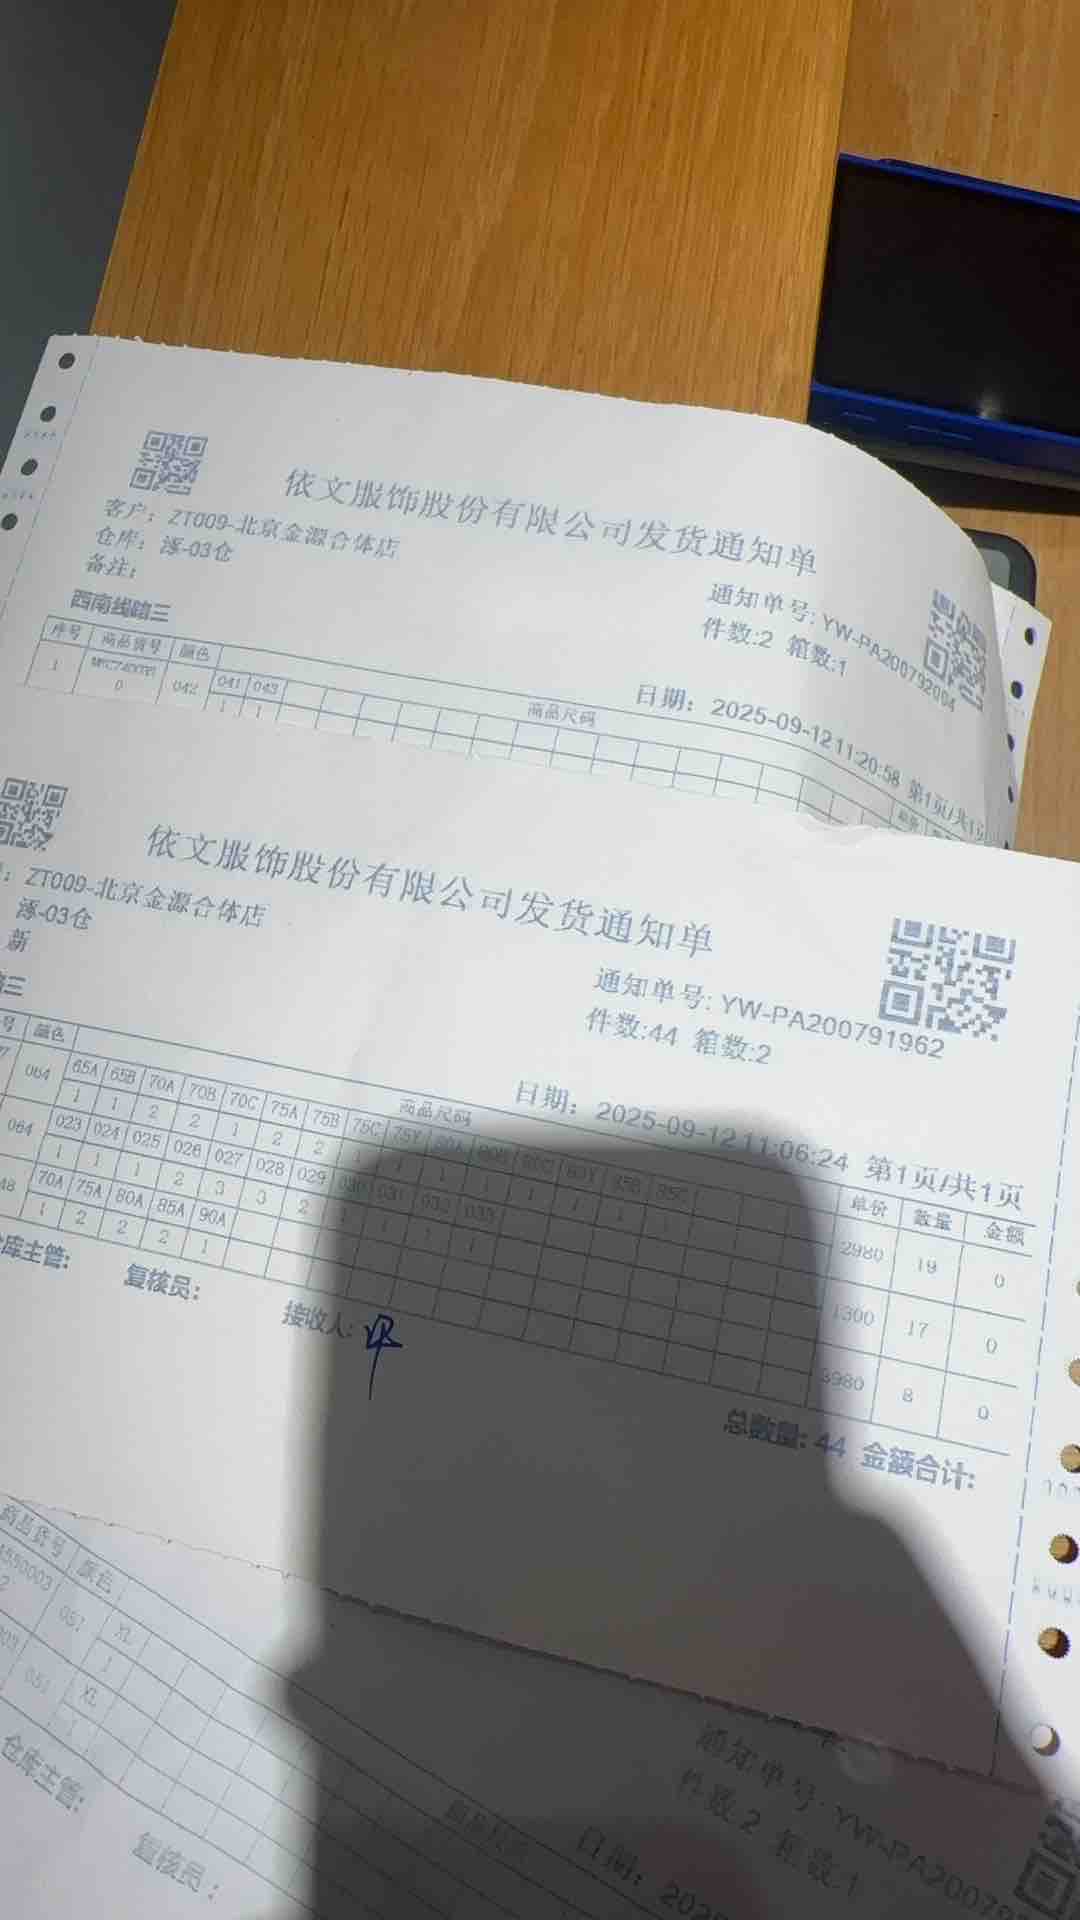 依文服饰股份有限公司发货通知单
客户：ZT009-北京金源合体店
仓库：涿-03仓
备注：
通知单号：YW-PA200792004
件数:2 箱数:1
西南线路三
日期：2025-09-12 11:20:58 第1页/共1页
序号 商品货号 颜色 商品尺码
1 0 042 041 043
1 1
依文服饰股份有限公司发货通知单
：ZT009-北京金源合体店
涿-03仓
新
通知单号：YW-PA200791962
件数:44 箱数:2
三
日期：2025-09-12 11:06:24 第1页/共1页
号 颜色 商品尺码 单价 数量 金额
064 65A 65B 70A 70B 70C 75A 75B 75C 75Y 80A 80B 80C 80Y 85B 85C 2980 19 0
1 1 2 2 1 2 2 1 1 1 1 1 1 1 1
064 023 024 025 026 027 028 029 030 031 032 033 1300 17 0
1 1 1 2 3 3 2 1 1 1 1
48 70A 75A 80A 85A 90A 8 0
1 2 2 2 1
库主管: 复核员: 接收人:
总数量: 44 金额合计:
商品货号 颜色
550003
2 057 XL
1
051 XL
1
仓库主管: 复核员:
通知单号：YW-PA2007
件数:2 箱数:1
日期：202